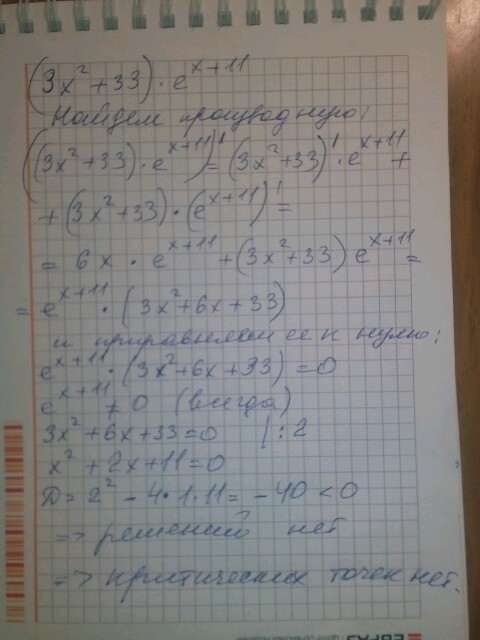 (3x² + 33) · e^{x+11}
Найдем производную:
((3x² + 33) · e^{x+11})' = (3x² + 33)' · e^{x+11} +
+ (3x² + 33) · (e^{x+11})' =
= 6x · e^{x+11} + (3x² + 33) e^{x+11} =
= e^{x+11} · (3x² + 6x + 33)
и приравняем ее к нулю:
e^{x+11} · (3x² + 6x + 33) = 0
e^{x+11} ≠ 0 (всегда)
3x² + 6x + 33 = 0 | : 2
x² + 2x + 11 = 0
D = 2² - 4 · 1 · 11 = -40 < 0
=> решений нет
=> критических точек нет.